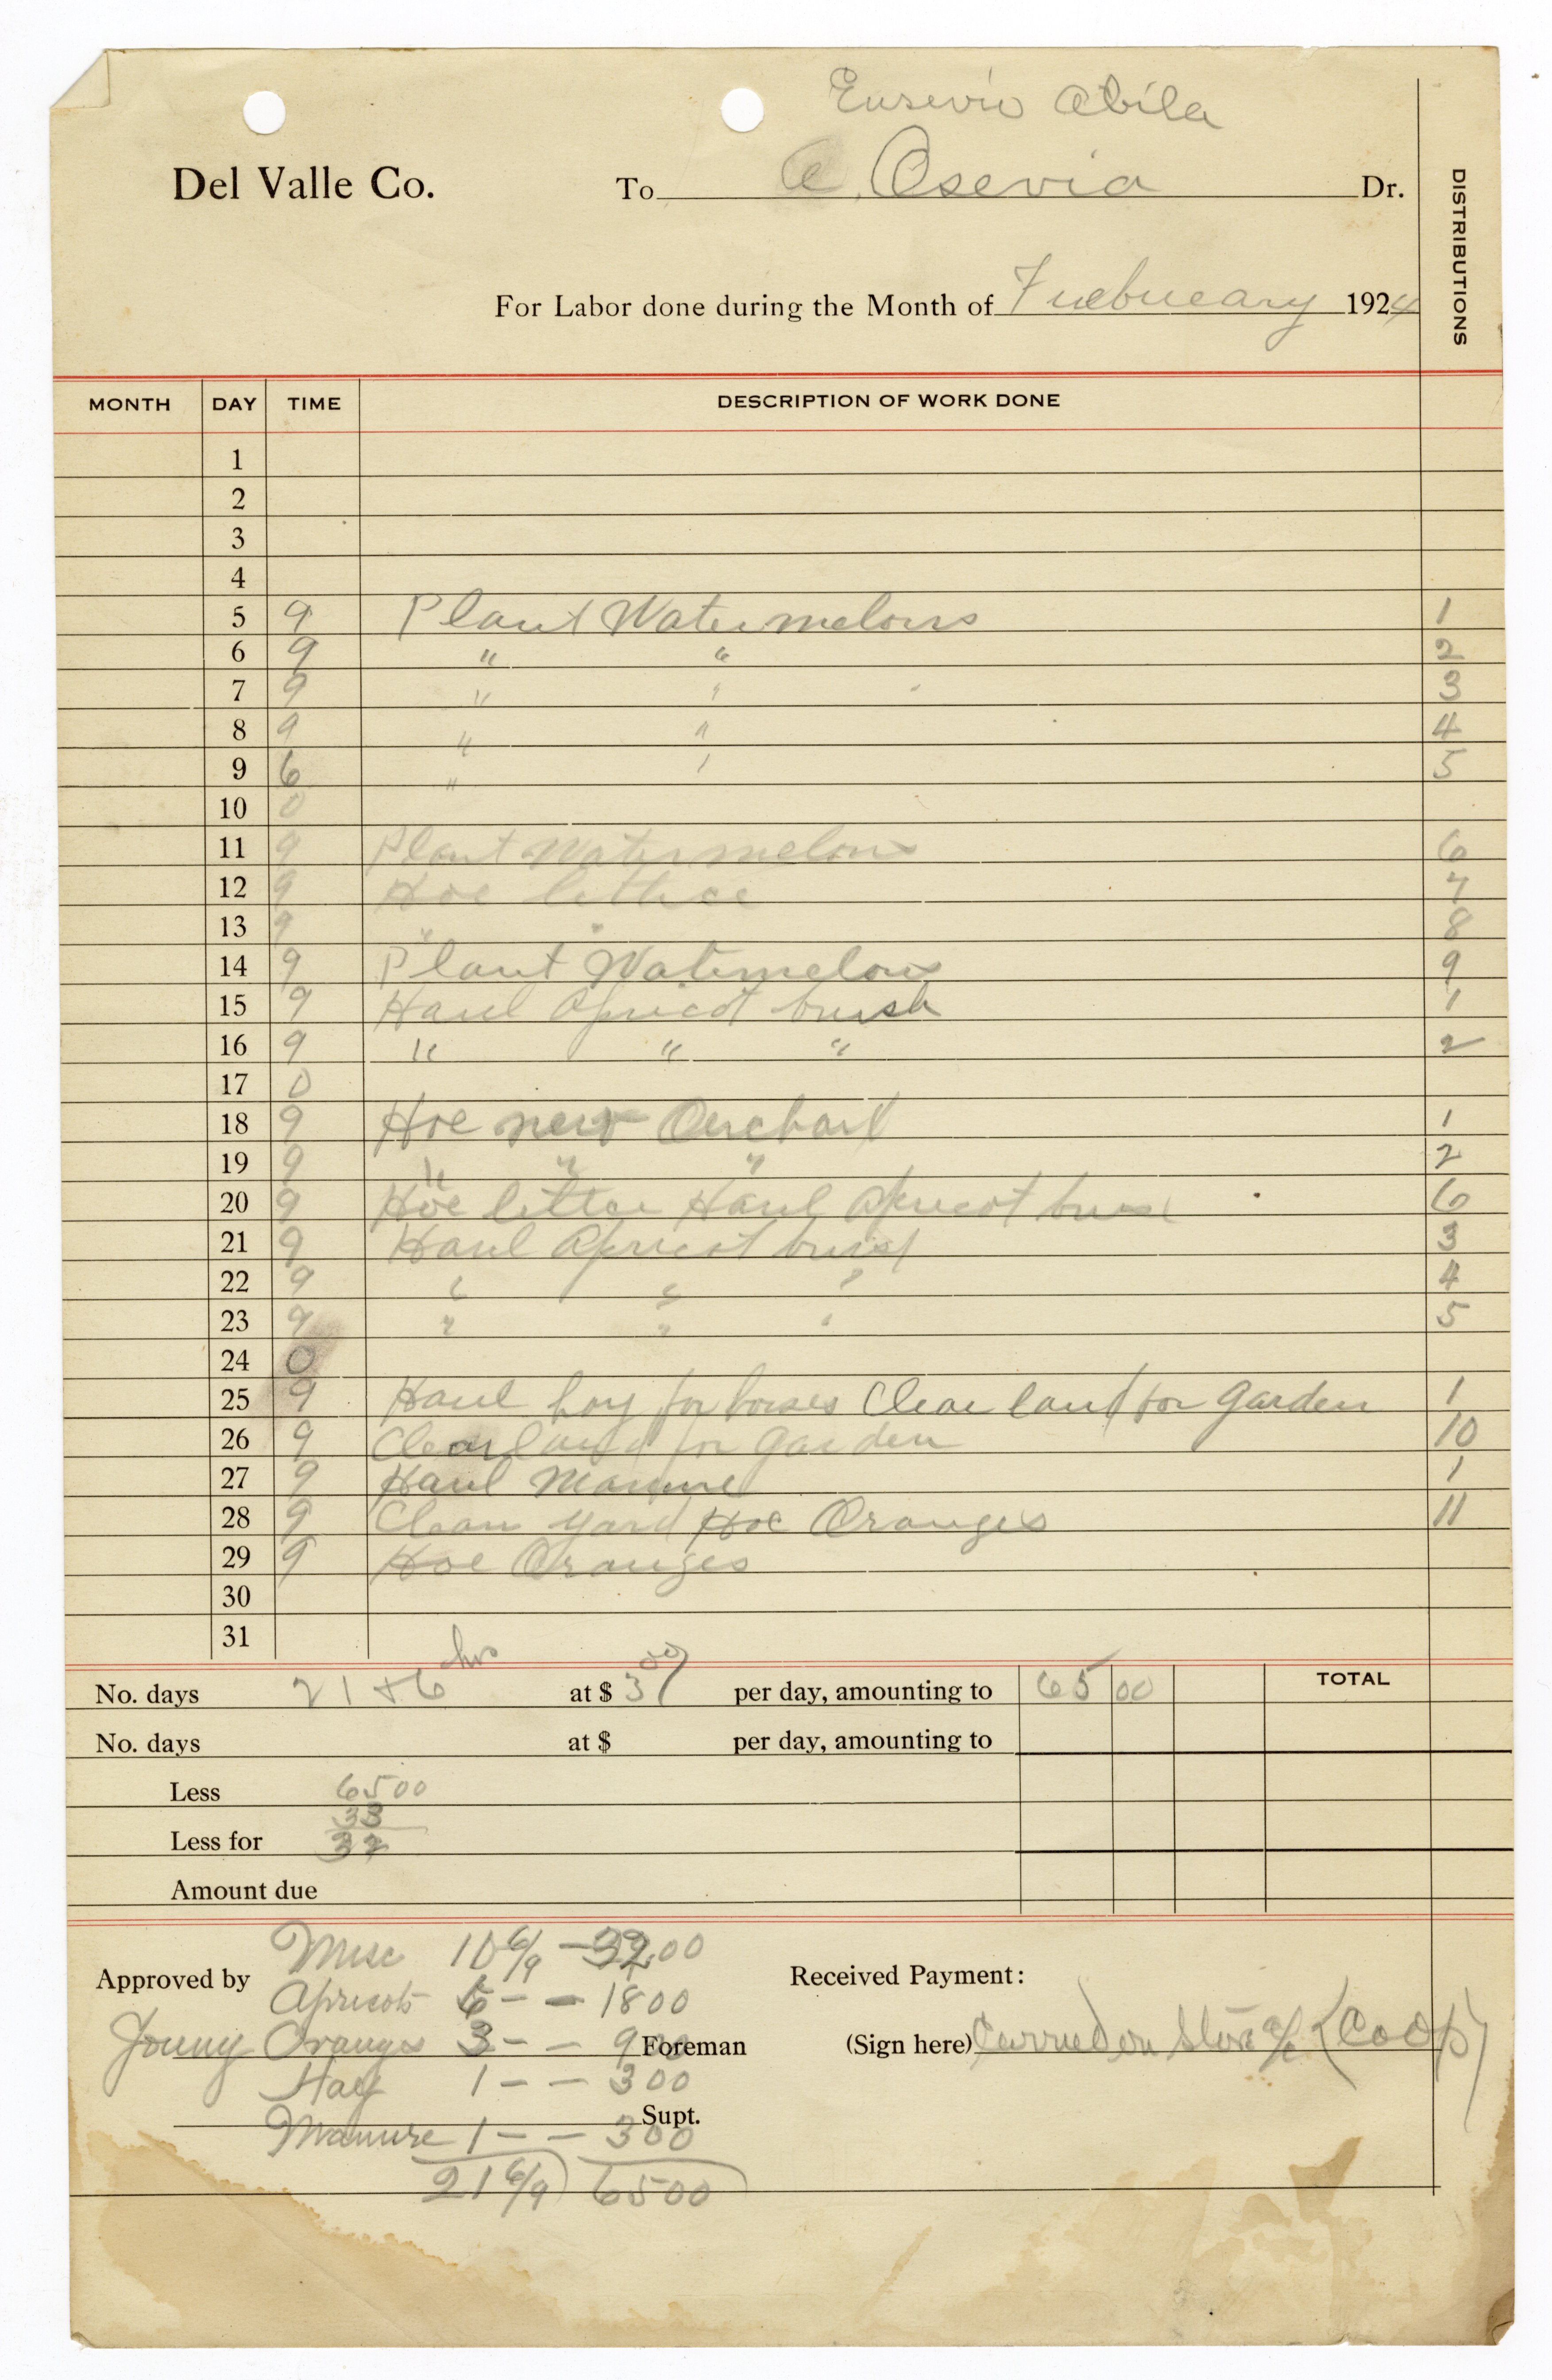 Eusevio Abila
Del Valle Co. To A. Osevia Dr.
DISTRIBUTIONS
For Labor done during the Month of Fuebueary 1924
MONTH DAY TIME DESCRIPTION OF WORK DONE
1
2
3
4
5 9 Plant Watermelons 1
6 9 " " 2
7 9 " " 3
8 9 " " 4
9 6 " " 5
10 0
11 9 Plant Watermelons 6
12 9 Hoe lettice 7
13 9 " " 8
14 9 Plant Watermelons 9
15 9 Haul Apricot brush 1
16 9 " " " 2
17 0
18 9 Hoe new Orchard 1
19 9 " " " 2
20 9 Hoe lettice Haul Apricot brush 6
21 9 Haul Apricot brush 3
22 9 " " " 4
23 9 " " " 5
24 0
25 9 Haul hay for horses Clear land for Garden 1
26 9 Clear land for Garden 10
27 9 Haul Manure 1
28 9 Clean yard Hoe Oranges 11
29 9 Hoe Oranges
30
31
No. days 21 + 6 hrs at $ 3 00 per day, amounting to 65 00 TOTAL
No. days at $ per day, amounting to
Less 65 00
33
Less for 32
Amount due
Misc 10 6/9 — 32.00
Approved by Received Payment:
Apricots 6 — — 18 00
Young Oranges 3 — — 9 00 Foreman (Sign here) Carried on Store a/c (CoOp)
Hay 1 — — 3 00
Supt.
Manure 1 — — 3 00
21 6/9 65 00